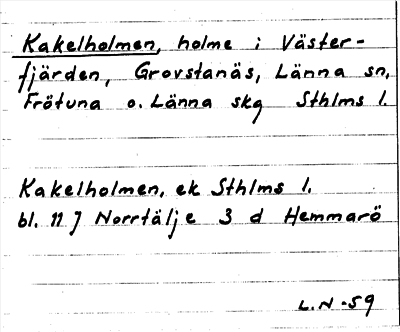 Kakelholmen, holme i Väster-
fjärden, Grovstanäs, Länna sn,
Frötuna o. Länna skg Sthlms l.
Kakelholmen, ek Sthlms l.
bl. 11 J Norrtälje 3 d Hemmarö
L.N -59